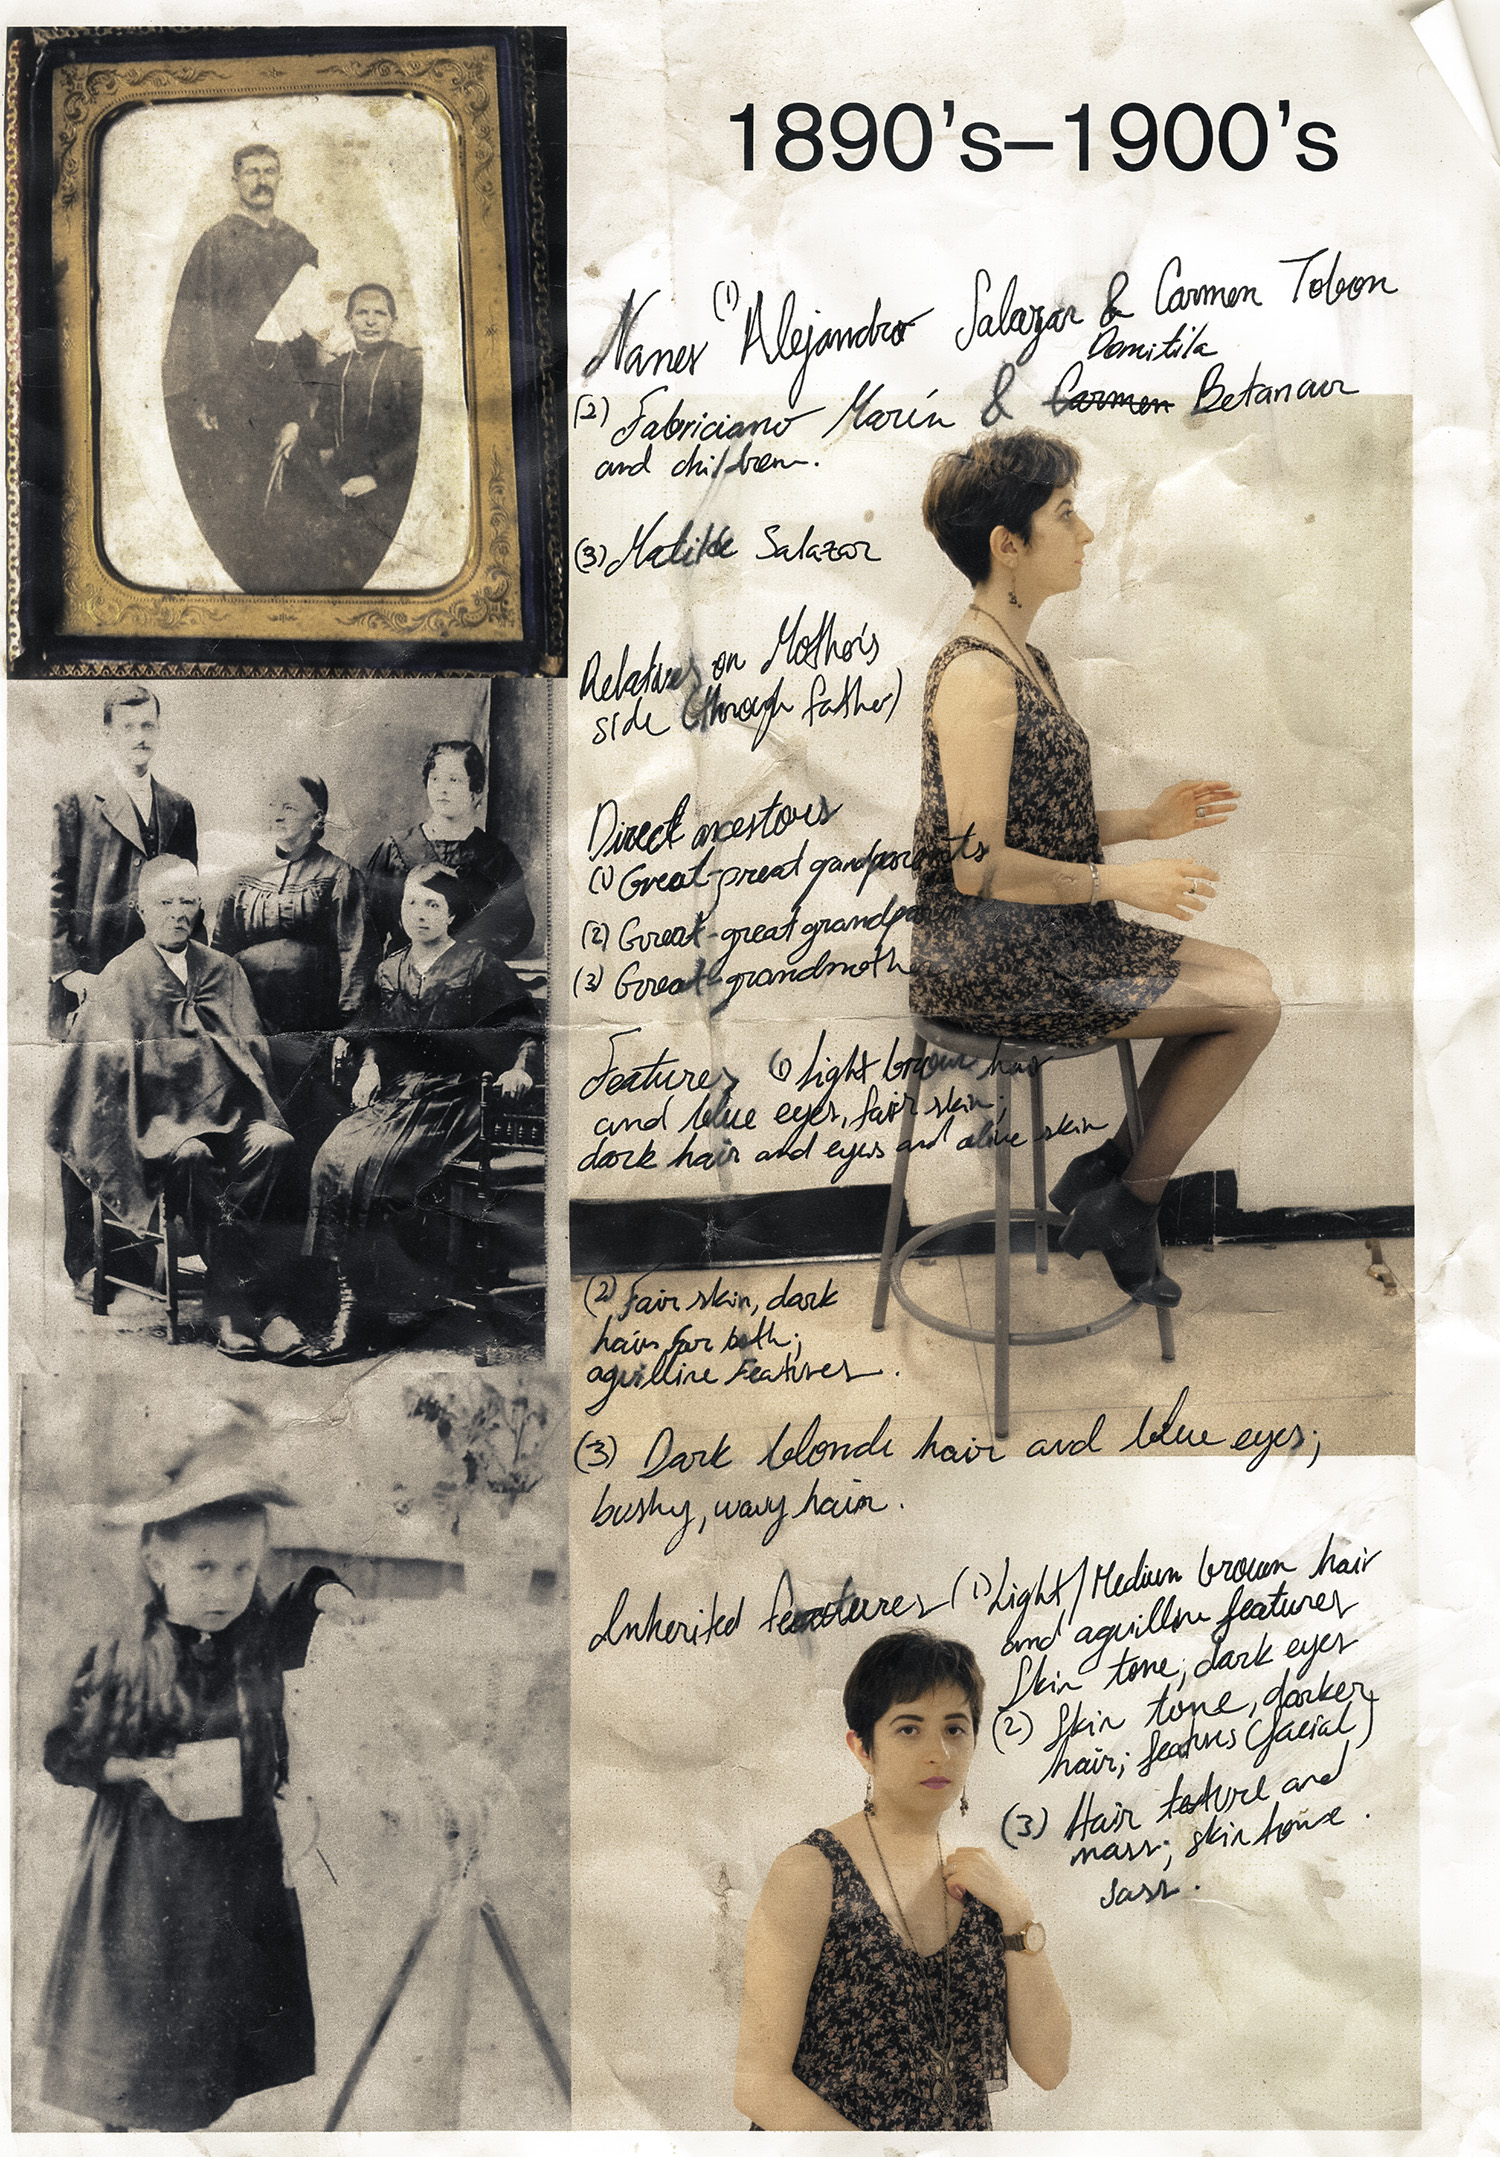 1890's–1900's
Names (1) Alejandro Salazar & Carmen Tobon
Domitila
(2) Fabriciano Marín & Carmen Betancur
and children.
(3) Matilde Salazar
Relatives on Mother's
side (through father)
Direct ancestors
(1) Great-great grandparents
(2) Great-great grandparents
(3) Great-grandmother
Features (1) Light brown hair
and blue eyes, fair skin;
dark hair and eyes and olive skin
(2) Fair skin, dark
hair for both;
aquilline features.
(3) Dark blonde hair and blue eyes;
bushy, wavy hair.
Inherited features (1) Light/Medium brown hair
and aquilline features
Skin tone; dark eyes
(2) Skin tone, darker
hair; features (facial)
(3) Hair texture and
mass; skin tone.